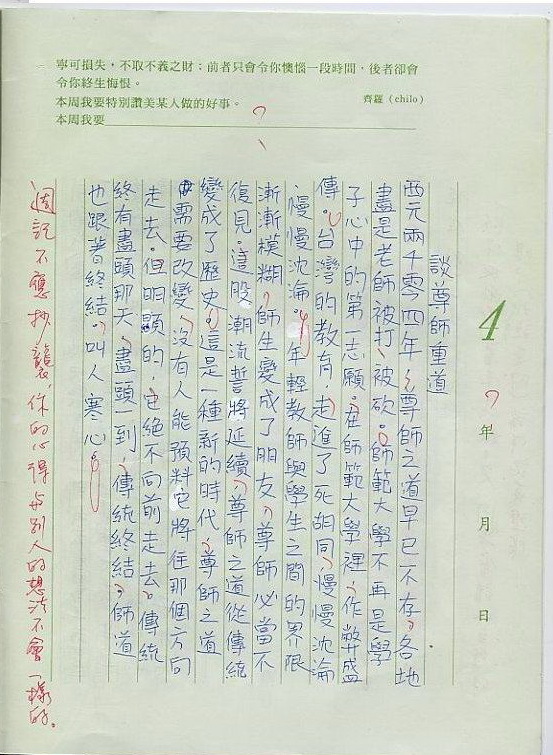 寧可損失，不取不義之財；前者只會令你懊惱一段時間，後者卻會
令你終生悔恨。
齊羅（chilo）
本周我要特別讚美某人做的好事。
本周我要
4
年 月 日
談尊師重道
西元兩千零四年，尊師之道早已不存，各地
盡是老師被打、被砍。師範大學不再是學
子心中的第一志願。在師範大學裡，作弊盛
傳。台灣的教育，走進了死胡同，慢慢沈淪
、慢慢沈淪。年輕教師與學生之間的界限
漸漸模糊，師生變成了朋友，尊師必當不
復見。這股潮流誓將延續，尊師之道從傳統
變成了歷史，這是一種新的時代，尊師之道
需要改變，沒有人能預料它將往那個方向
走去。但明顯的，它絕不向前走去。傳統
終有盡頭那天，盡頭一到，傳統終結，師道
也跟著終結，叫人寒心。
週記不應抄襲，你的心得與別人的想法不會一樣的。